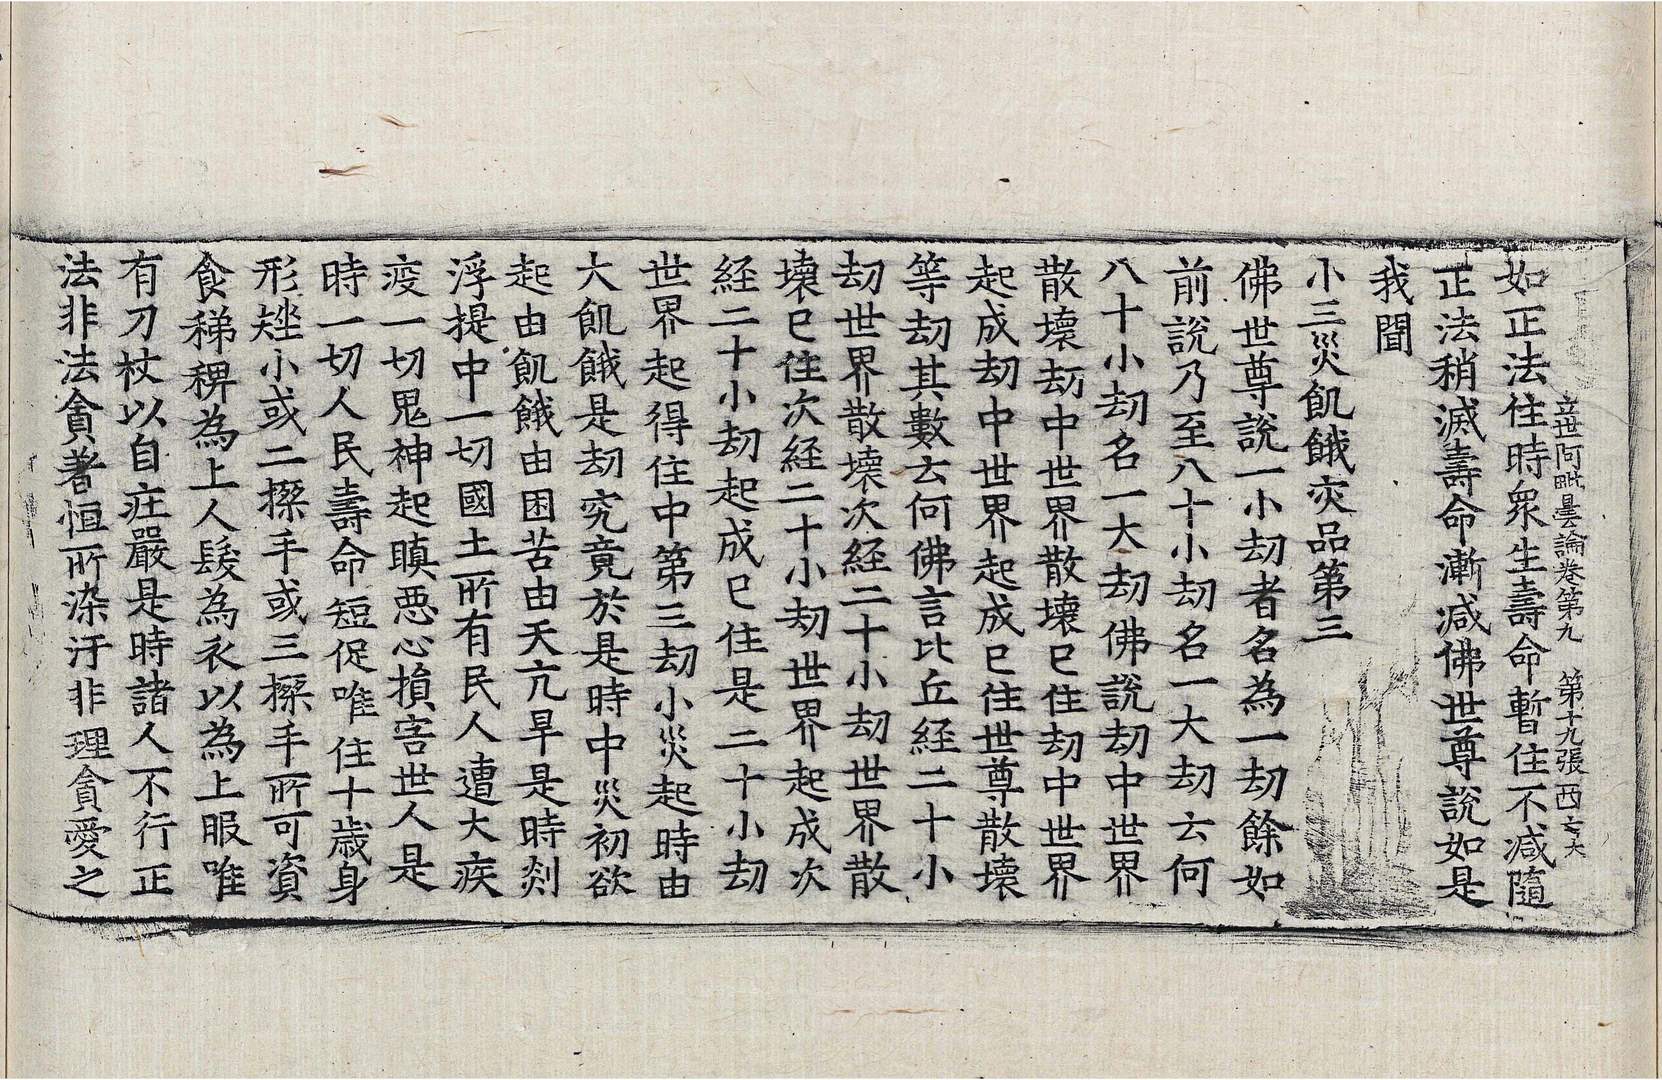 立世阿毗曇論卷第九　第十九張　西
如正法住時衆生壽命暫住不減隨
正法稍滅壽命漸減佛世尊說如是
我聞
小三災飢餓灾品第三
佛世尊說一小劫者名為一劫餘如
前說乃至八十小劫名一大劫云何
八十小劫名一大劫佛說劫中世界
散壞劫中世界散壞已住劫中世界
起成劫中世界起成已住世尊散壞
等劫其數云何佛言比丘経二十小
劫世界散壞次経二十小劫世界散
壞已住次経二十小劫世界起成次
経二十小劫起成已住是二十小劫
世界起得住中第三劫小災起時由
大飢餓是劫究竟於是時中災初欲
起由飢餓由困苦由天亢旱是時剡
浮提中一切國土所有民人遭大疾
疫一切鬼神起瞋惡心損害世人是
時一切人民壽命短促唯住十歳身
形矬小或二搩手或三搩手所可資
食稊稗為上人髮為衣以為上服唯
有刀杖以自庄嚴是時諸人不行正
法非法貪著恒所染汙非理貪愛之